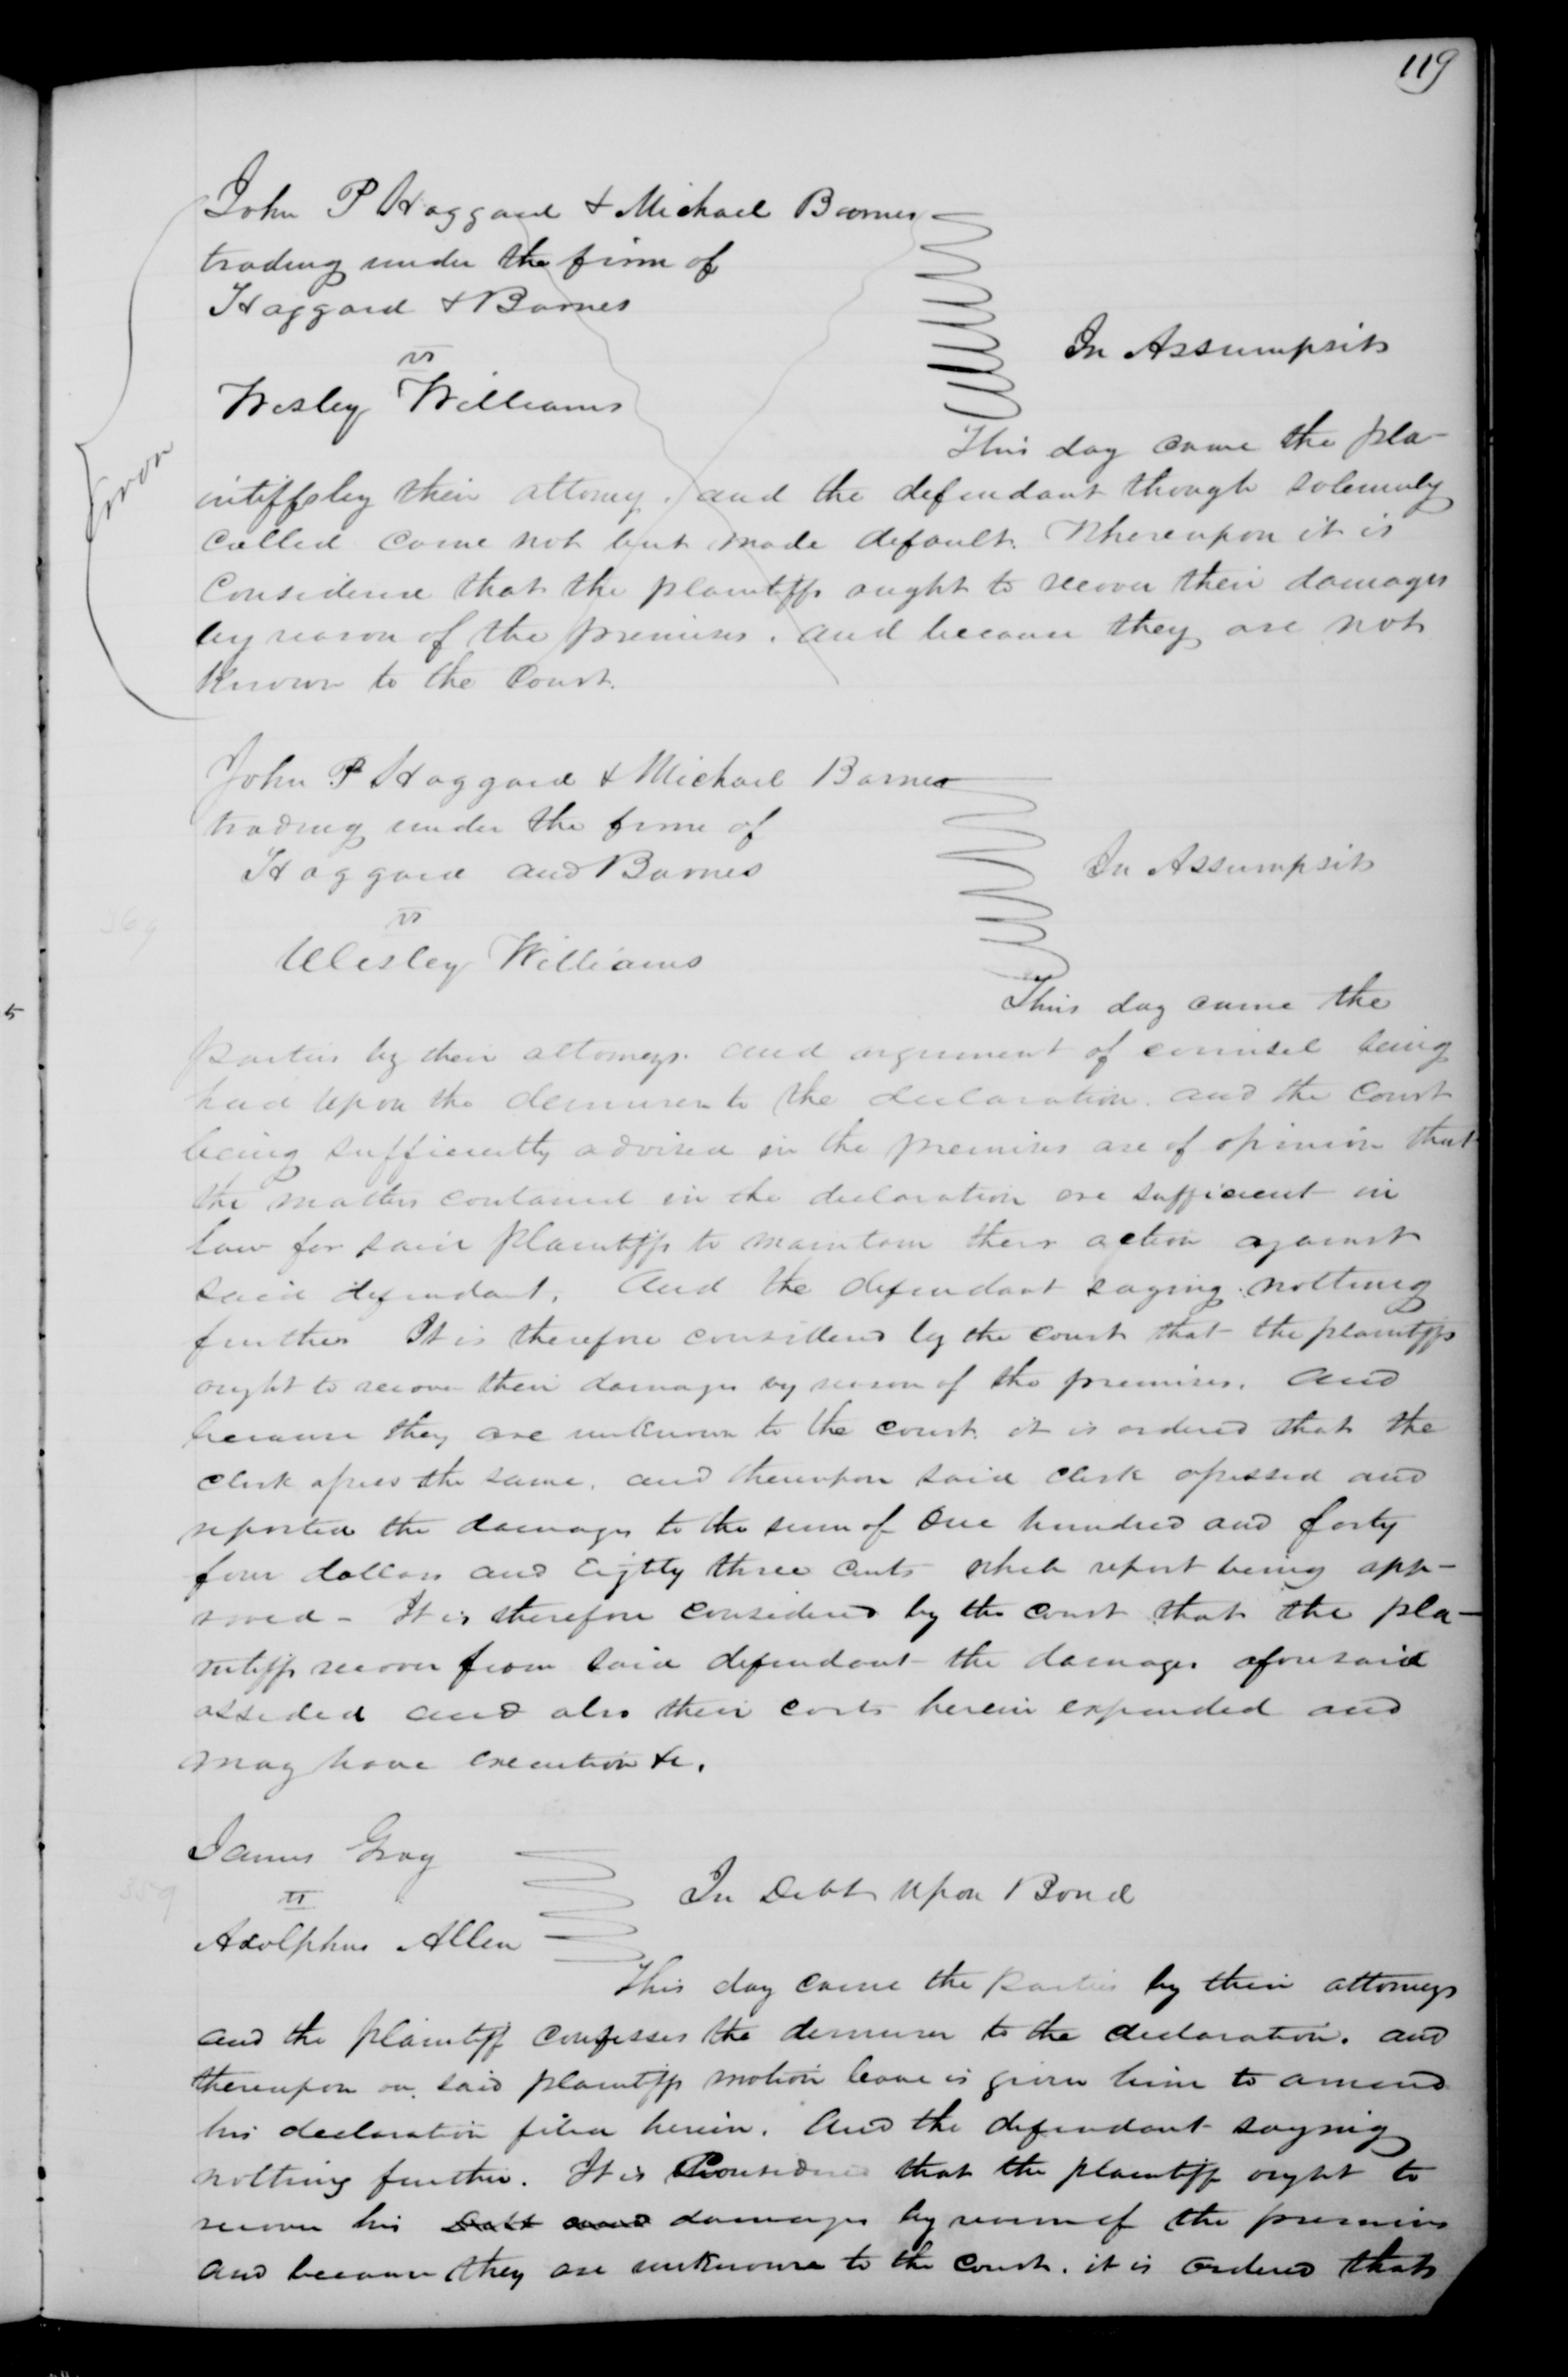 119
John P Haggard & Michael Barnes
trading under the firm of
Haggard & Barnes
vs
Wesley Williams
In Assumpsit
Error
This day came the pla-
intiffs by their attorney. and the defendant though solemnly
called came not but made default. Whereupon it is
Considered that the plaintiffs ought to recover their damages
by reason of the premises. and because they are not
Known to the Court.
John P Haggard & Michael Barnes
trading under the firm of
Haggard and Barnes
vs
Wesley Williams
In Assumpsit
369
This day came the
parties by their attorneys. and argument of counsel being
had upon the demurrer to the declaration. and the Court
being sufficiently advised in the premises are of opinion that
the matters contained in the declaration are sufficient in
law for said plaintiffs to maintain their action against
said defendant. And the defendant saying nothing
further It is therefore considered by the court that the plaintiffs
ought to recover their damages by reason of the premises. And
because they are unknown to the court. it is ordered that the
clerk assess the same. and thereupon said clerk assessed and
reported the damages to the sum of One hundred and forty
four dollars and Eighty three cents which report being app-
roved - It is therefore considered by the court that the pla-
intiffs recover from said defendant the damages aforesaid
assessed and also their costs herein expended and
may have execution &c.
James Gray
vs
Adolphus Allen
In Debt upon Bond
This day came the parties by their attorneys
and the plaintiff confesses the demurrer to the declaration. and
thereupon on said plaintiffs motion leave is given him to amend
his declaration filed herein. And the defendant saying
nothing further. It is Considered that the plaintiff ought to
recover his Debt and damages by reason of the premises
and because they are unknown to the court. it is ordered that